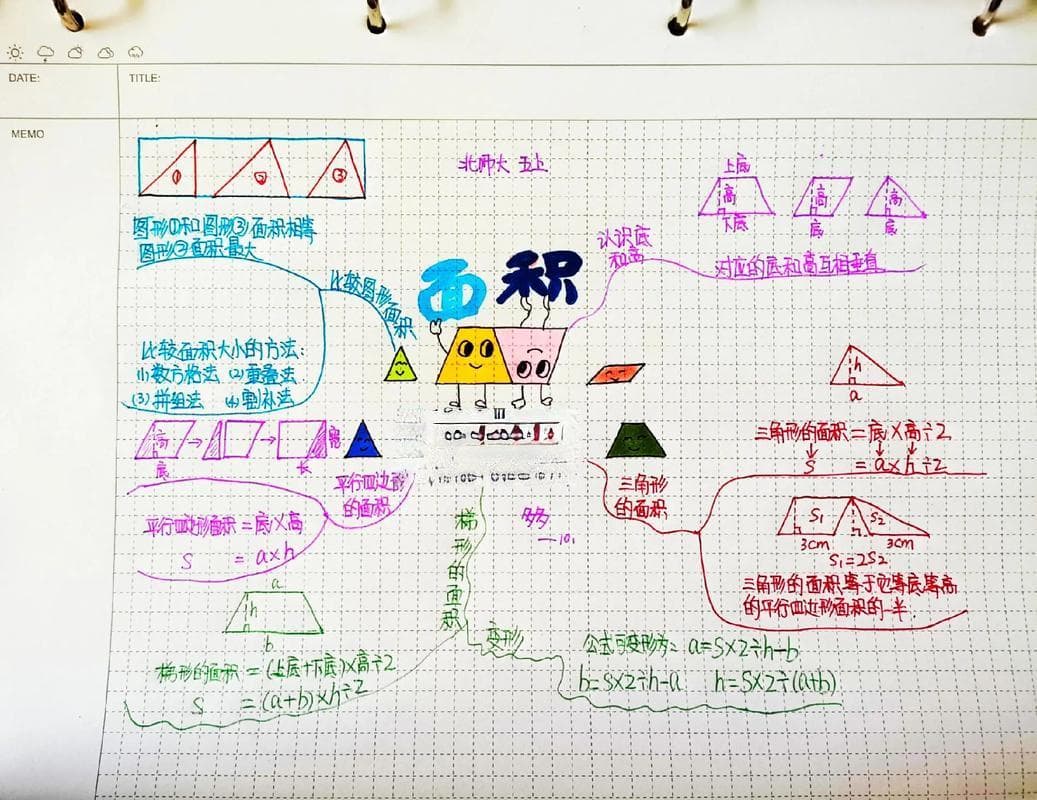 DATE:
TITLE:
MEMO
北师大 五上
① ② ③
图形①和图形③面积相等
图形②面积最大
比较图形面积
比较面积大小的方法:
(1)数方格法 (2)重叠法
(3)拼组法 (4)割补法
面积
上底
高
下底
高
底
高
底
认识底
和高
对应的底和高互相垂直
高
底
长
宽
平行四边形
的面积
平行四边形面积=底×高
S =a×h
h
a
三角形的面积=底×高÷2
S =a×h÷2
三角形
的面积
S1
S2
3cm
3cm
S1=2S2
三角形的面积等于它等底等高
的平行四边形面积的一半.
a
h
b
梯形的面积
梯形的面积=(上底+下底)×高÷2
S =(a+b)×h÷2
变形
a=S×2÷h-b
b=S×2÷h-a h=S×2÷(a+b)